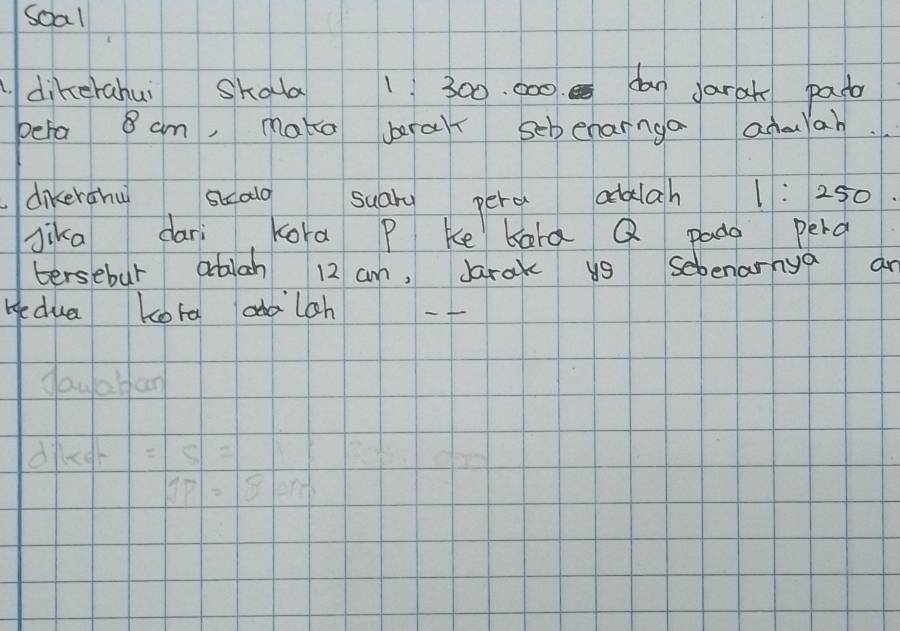 Soal
1. diketahui skala 1 : 300.000. dan jarak pada
peta 8 cm, maka jarak sebenarnya adalah ..
. diketahui skala suatu peta adalah 1 : 250.
Jika dari kota P ke kota Q pada peta
tersebut adalah 12 cm, Jarak yg sebenarnya an
kedua kota adalah --
Jawaban
diket = S = 1 : 300.000
JP = 8 cm